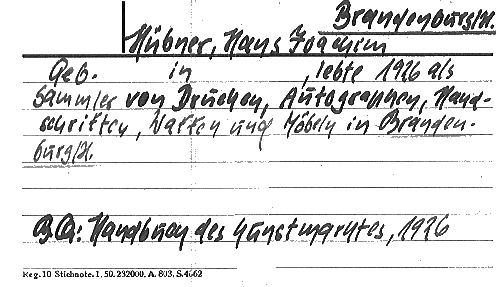 Brandenburg/H.
Hübner, Hans Joachim
Geb. in , lebte 1926 als
Sammler von Drucken, Autographen, Hand-
schriften, Waffen und Möbeln in Branden-
burg/H.
B.Q.: Handbuch des Kunstmarktes, 1926
Reg. 10 Stichnote. I. 50. 232000. A. 803. S. 4662